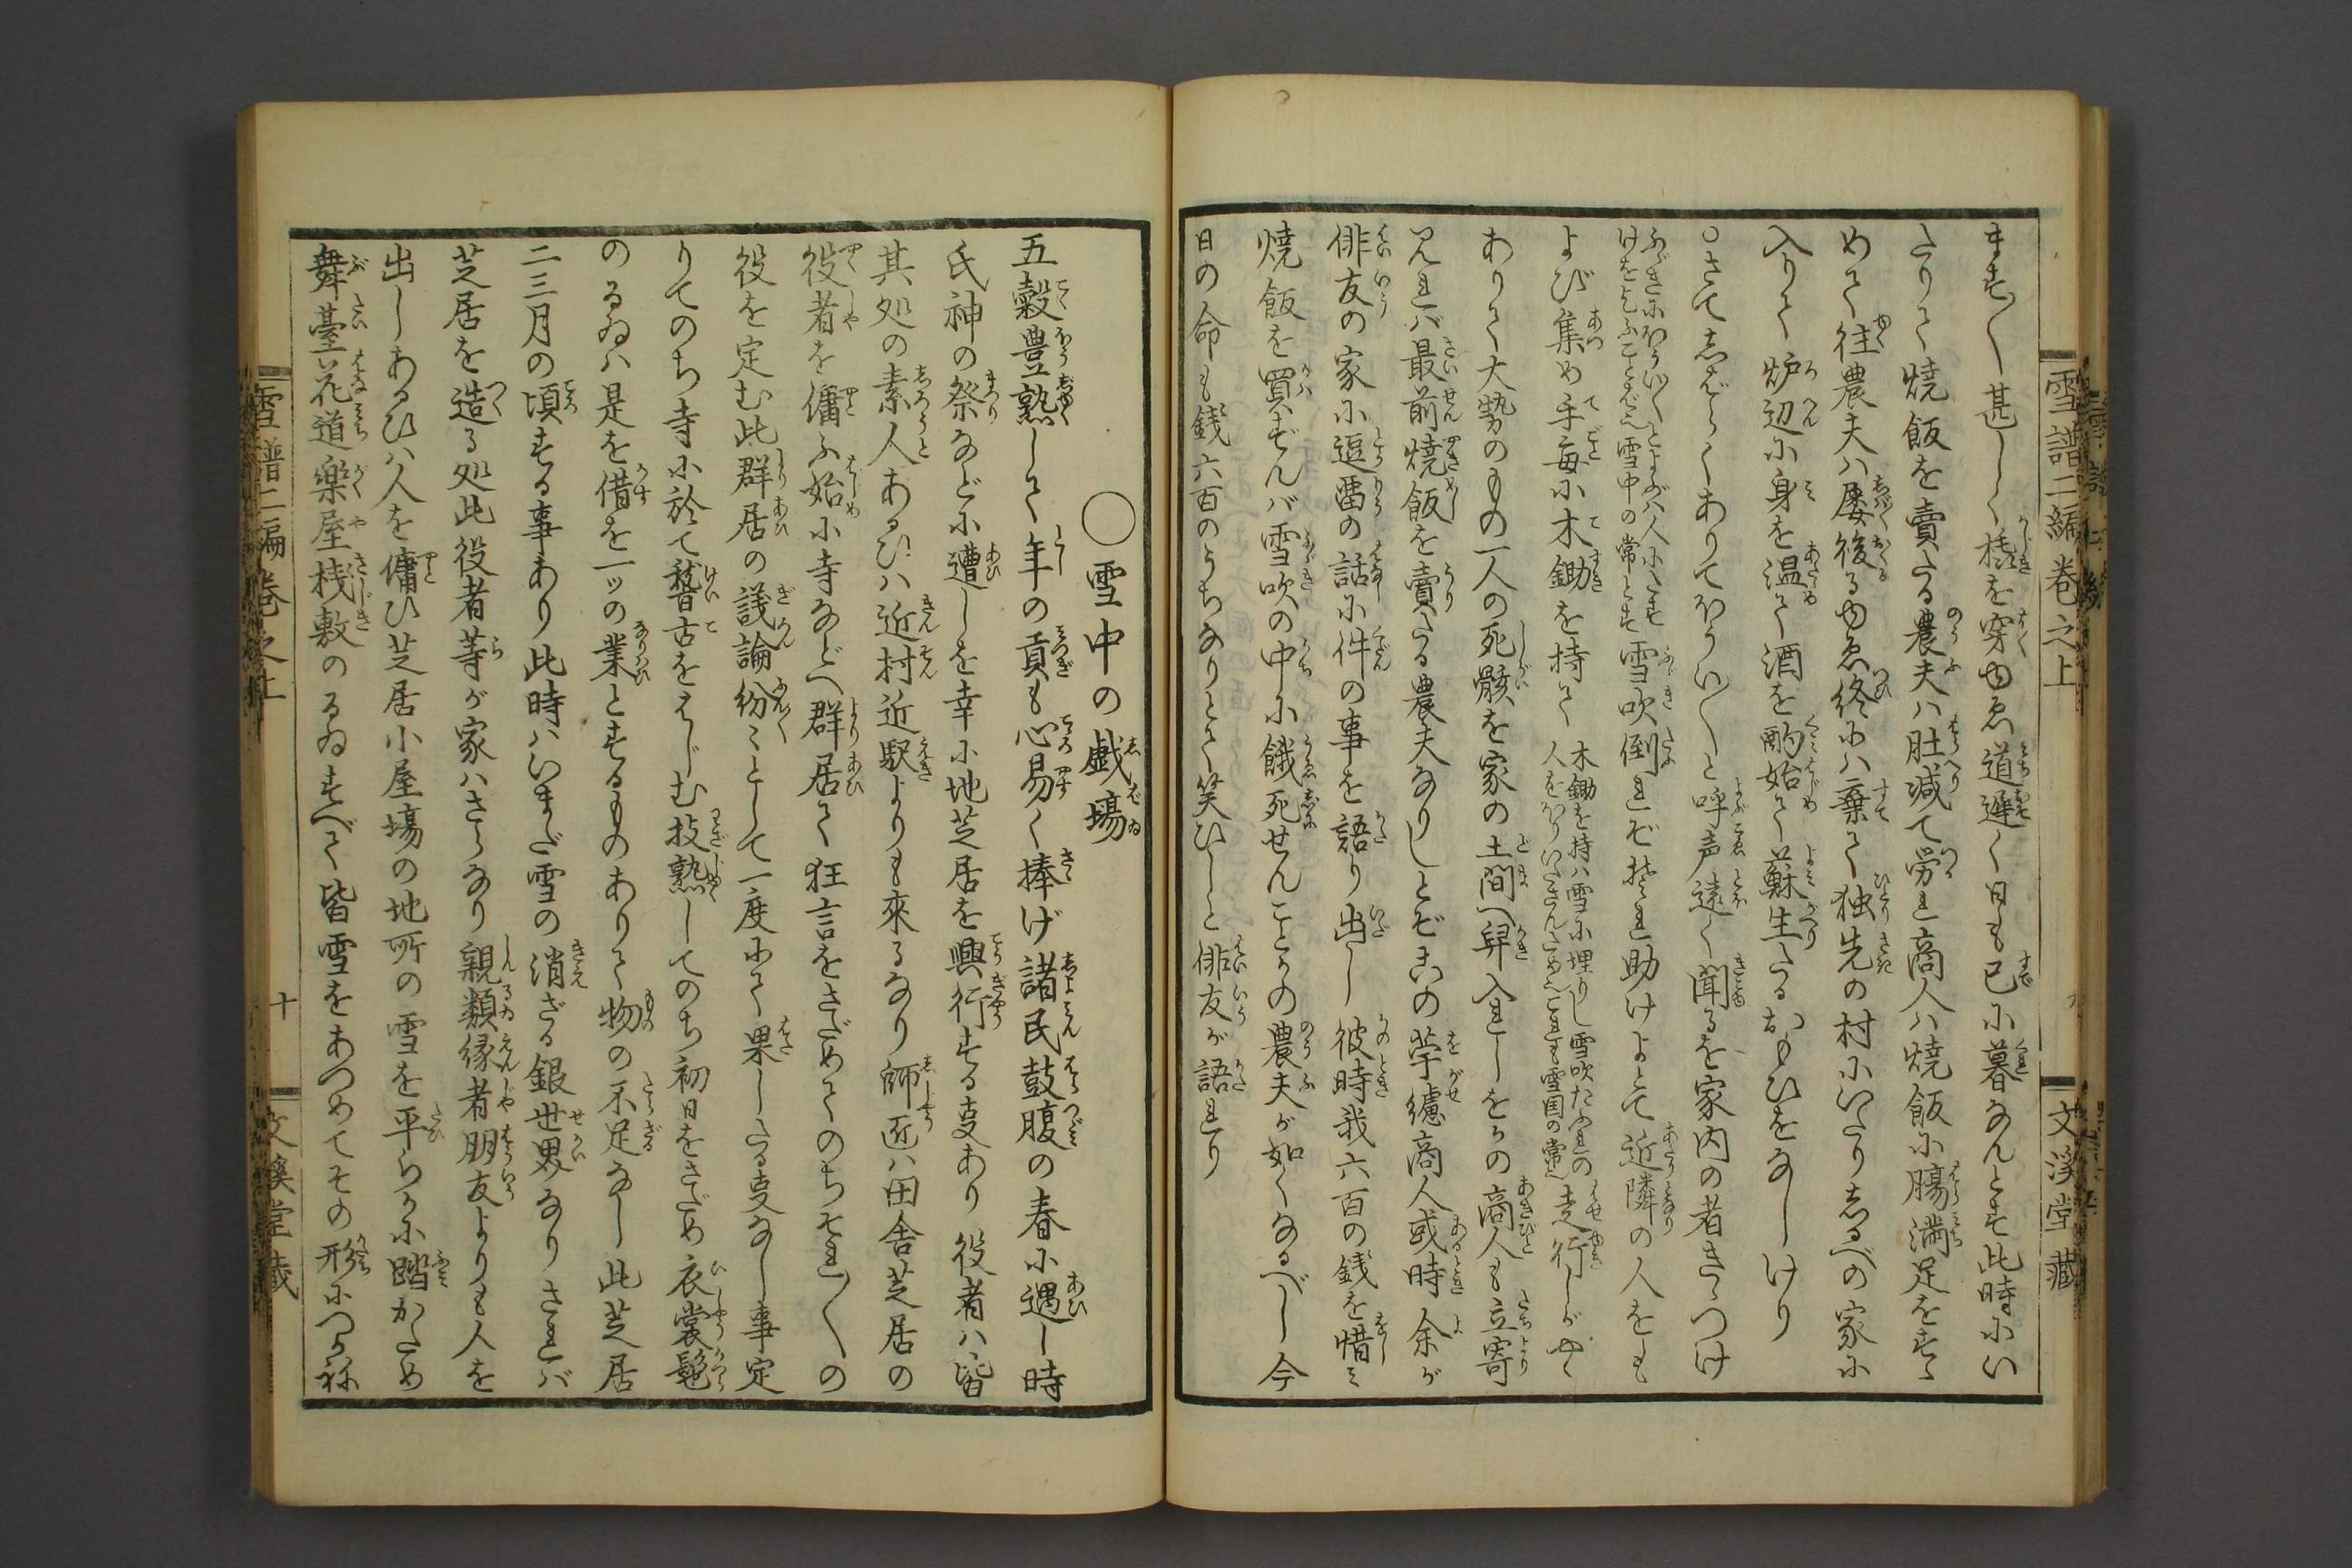 雪譜二編巻之上
文溪堂藏
ます〳〵甚しく橇を穿ゆゑ道遅く日も已に暮なんとす此時にい
たりて焼飯を賣たる農夫ハ肚減て労れ商人ハ焼飯に膓満足をすゝ
めて往農夫ハ屡後るゆゑ終にハ棄て独先の村にいたりしるべの家に
入りて炉辺に身を温て酒を酌始て蘇生たるおもひをなしけり
○さてしばらくありてほうい〳〵と呼声遠く聞るを家内の者きゝつけ
ふゞきにほうい〳〵とよぶハ人にたす
けを乞ふことば也雪中の常とす
雪吹倒れぞそれ助けよとて近隣の人をも
よび集め手毎に木鋤を持て
木鋤を持ハ雪に埋りし雪吹たふれの
人をほりいださんため也これも雪国の常也
走行しがやゝ
ありて大勢のもの一人の死骸を家の土間へ舁入れしをかの商人も立寄
見れバ最前焼飯を賣たる農夫なりしとぞこの苧纑商人或時余が
俳友の家に逗畱の話に件の事を語り出し彼時我六百の銭を惜ミ
焼飯を買ずんバ雪吹の中に餓死せんことかの農夫が如くなるべし今
日の命も銭六百のうちなりとて笑ひしと俳友が語れり
○雪中の戯塲
五糓豊熟して年の貢も心易く捧げ諸民鼓腹の春に遇し時
氏神の祭などに遭しを幸に地芝居を興行する叓あり役者ハ皆
其処の素人あるひハ近村近駅よりも來るなり師匠ハ田舎芝居の
役者を傭ふ始に寺などへ群居て狂言をさだめてのちそれ〳〵の
役を定む此群居の議論紛〻として一度にて果したる叓なし事定
りてのち寺に於て稽古をはじむ技熟してのち初日をさだめ衣裳髢
のるゐハ是を借を一ッの業とするものありて物の不足なし此芝居
二三月の頃する事あり此時ハいまだ雪の消ざる銀世界なりされバ
芝居を造る処此役者等が家ハさらなり親類縁者朋友よりも人を
出しあるひハ人を傭ひ芝居小屋塲の地所の雪を平らかに踏かため
舞臺花道楽屋桟敷のるゐすべて皆雪をあつめてその形につかね
雪譜二編巻之上
十
文溪堂藏